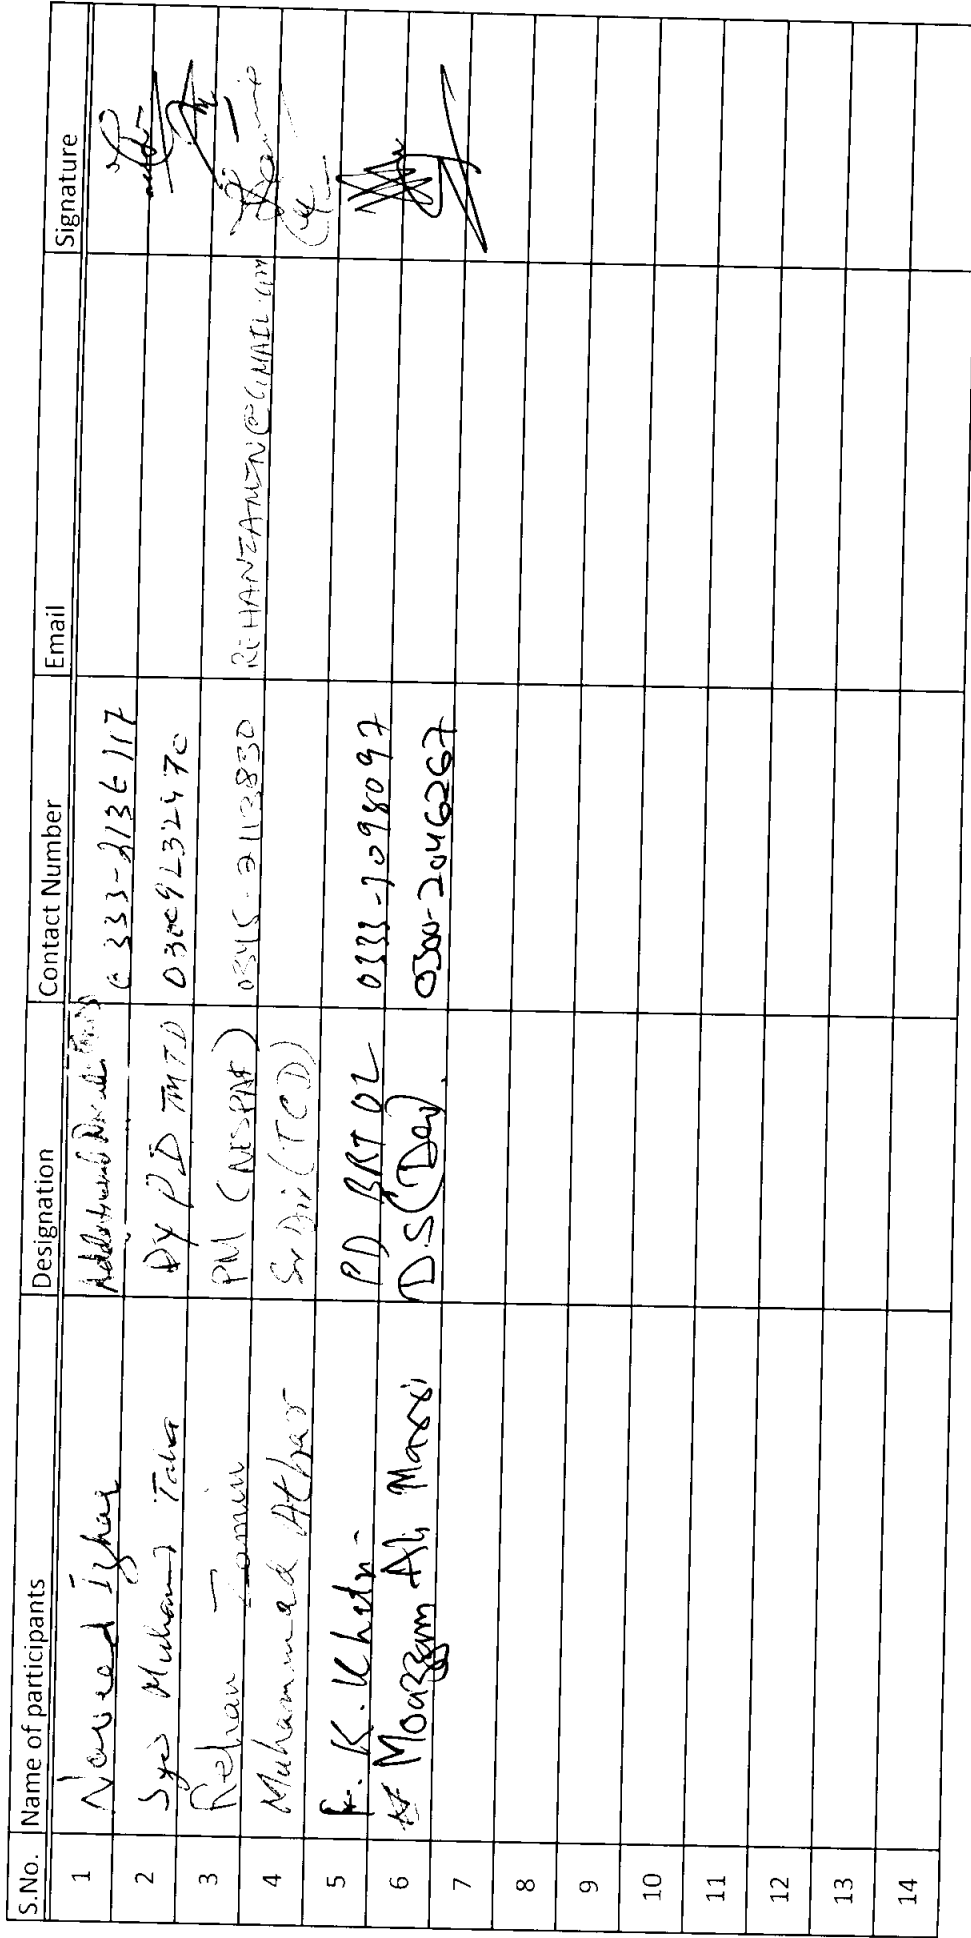 S.No. Name of participants Designation Contact Number Email Signature
1 Naveed Izhar Additional 333-2136117
2 Syed Muhammad Taha Dy PD MTD
3 Rehan Zamin PM (NESPAK) 0345-2113830 REHANZAMIN@GMAIL.COM
4 Muhammad Athar Sr Dir (TCD)
5 K. Khatri PD BRT 02
6 Moazzam Ali Marri DS (Dev) 0300-2046267
7
8
9
10
11
12
13
14